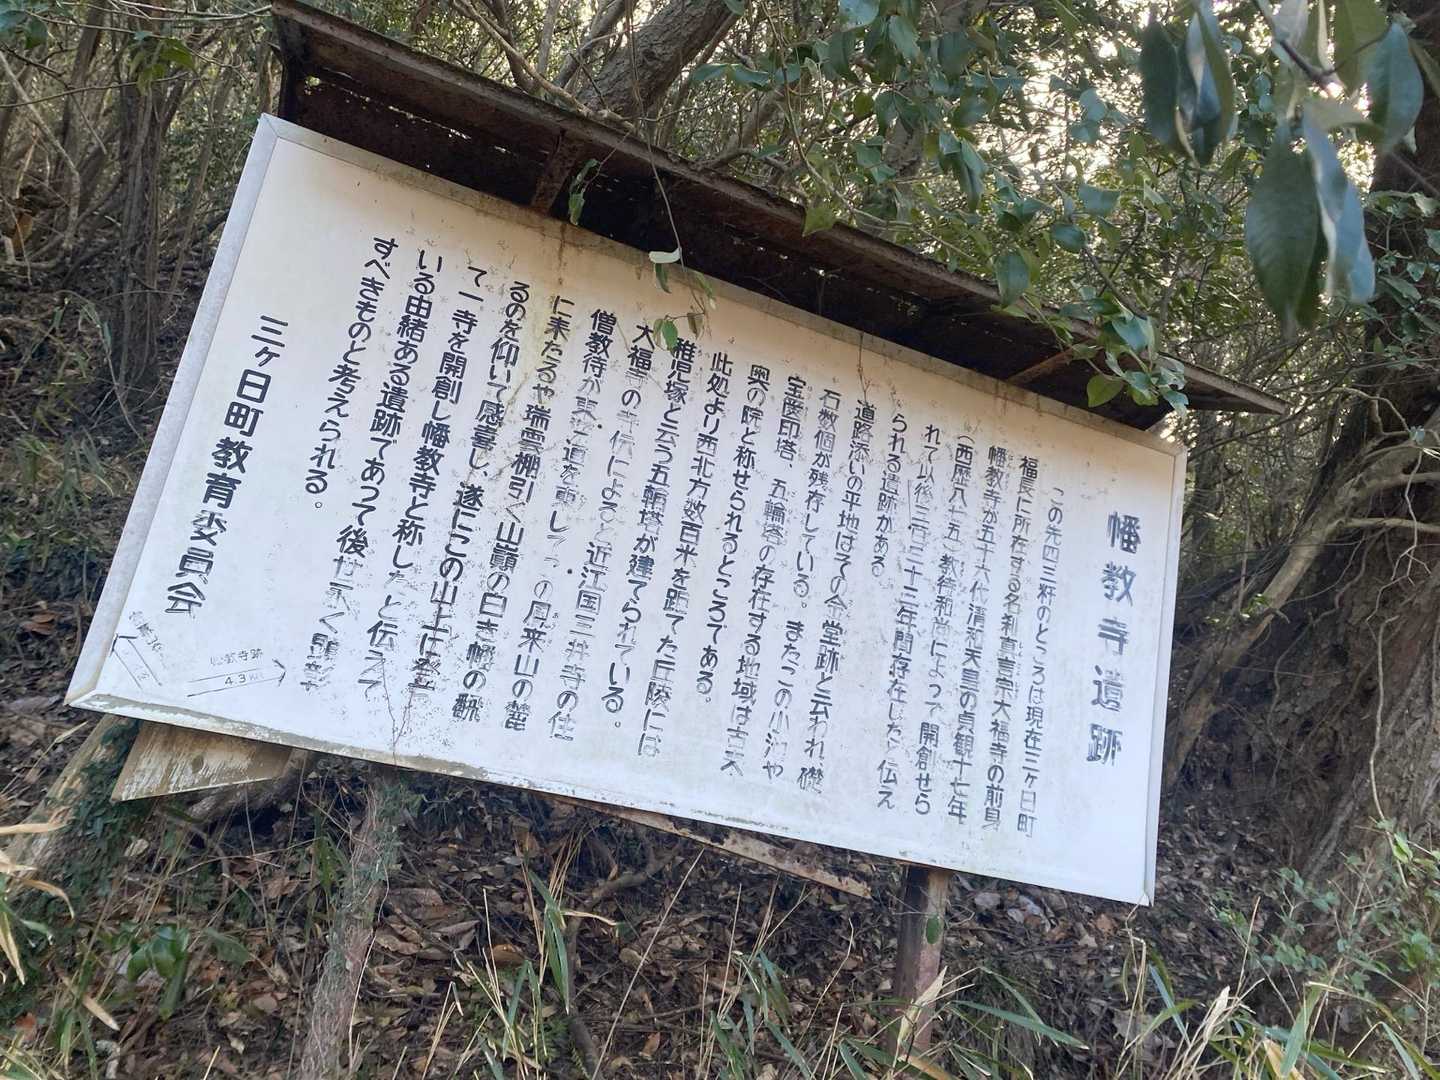 幡教寺遺跡
この先四三粁のところは現在三ヶ日町
福長に所在する名刹真言宗大福寺の前身
幡教寺が五十六代清和天皇の貞観十七年
(西歴八七五)教待和尚によって開創せら
れて以後三百三十三年間存在したと伝え
られる遺跡がある
道路添いの平地はその金堂跡と云われ、礎
石数個が残存している。またこの小池や
宝篋印塔、五輪塔の存在する地域は古来
奥の院と称せられるところである。
此処より西北方数百米を距てた丘陵には
稚児塚と云う五輪塔が建てられている。
大福寺の寺伝によると近江国三井寺の住
僧教待が東 道を して の風来山の麓
に来たるや瑞雲棚引く山巓の白き幡の翻
るのを仰いで感喜し、遂にこの山上に登
て一寺を開創し幡教寺と称したと伝えて
いる由緒ある遺跡であって後世 く顕彰
すべきものと考えられる。
三ヶ日町教育委員会
寺跡
4.3